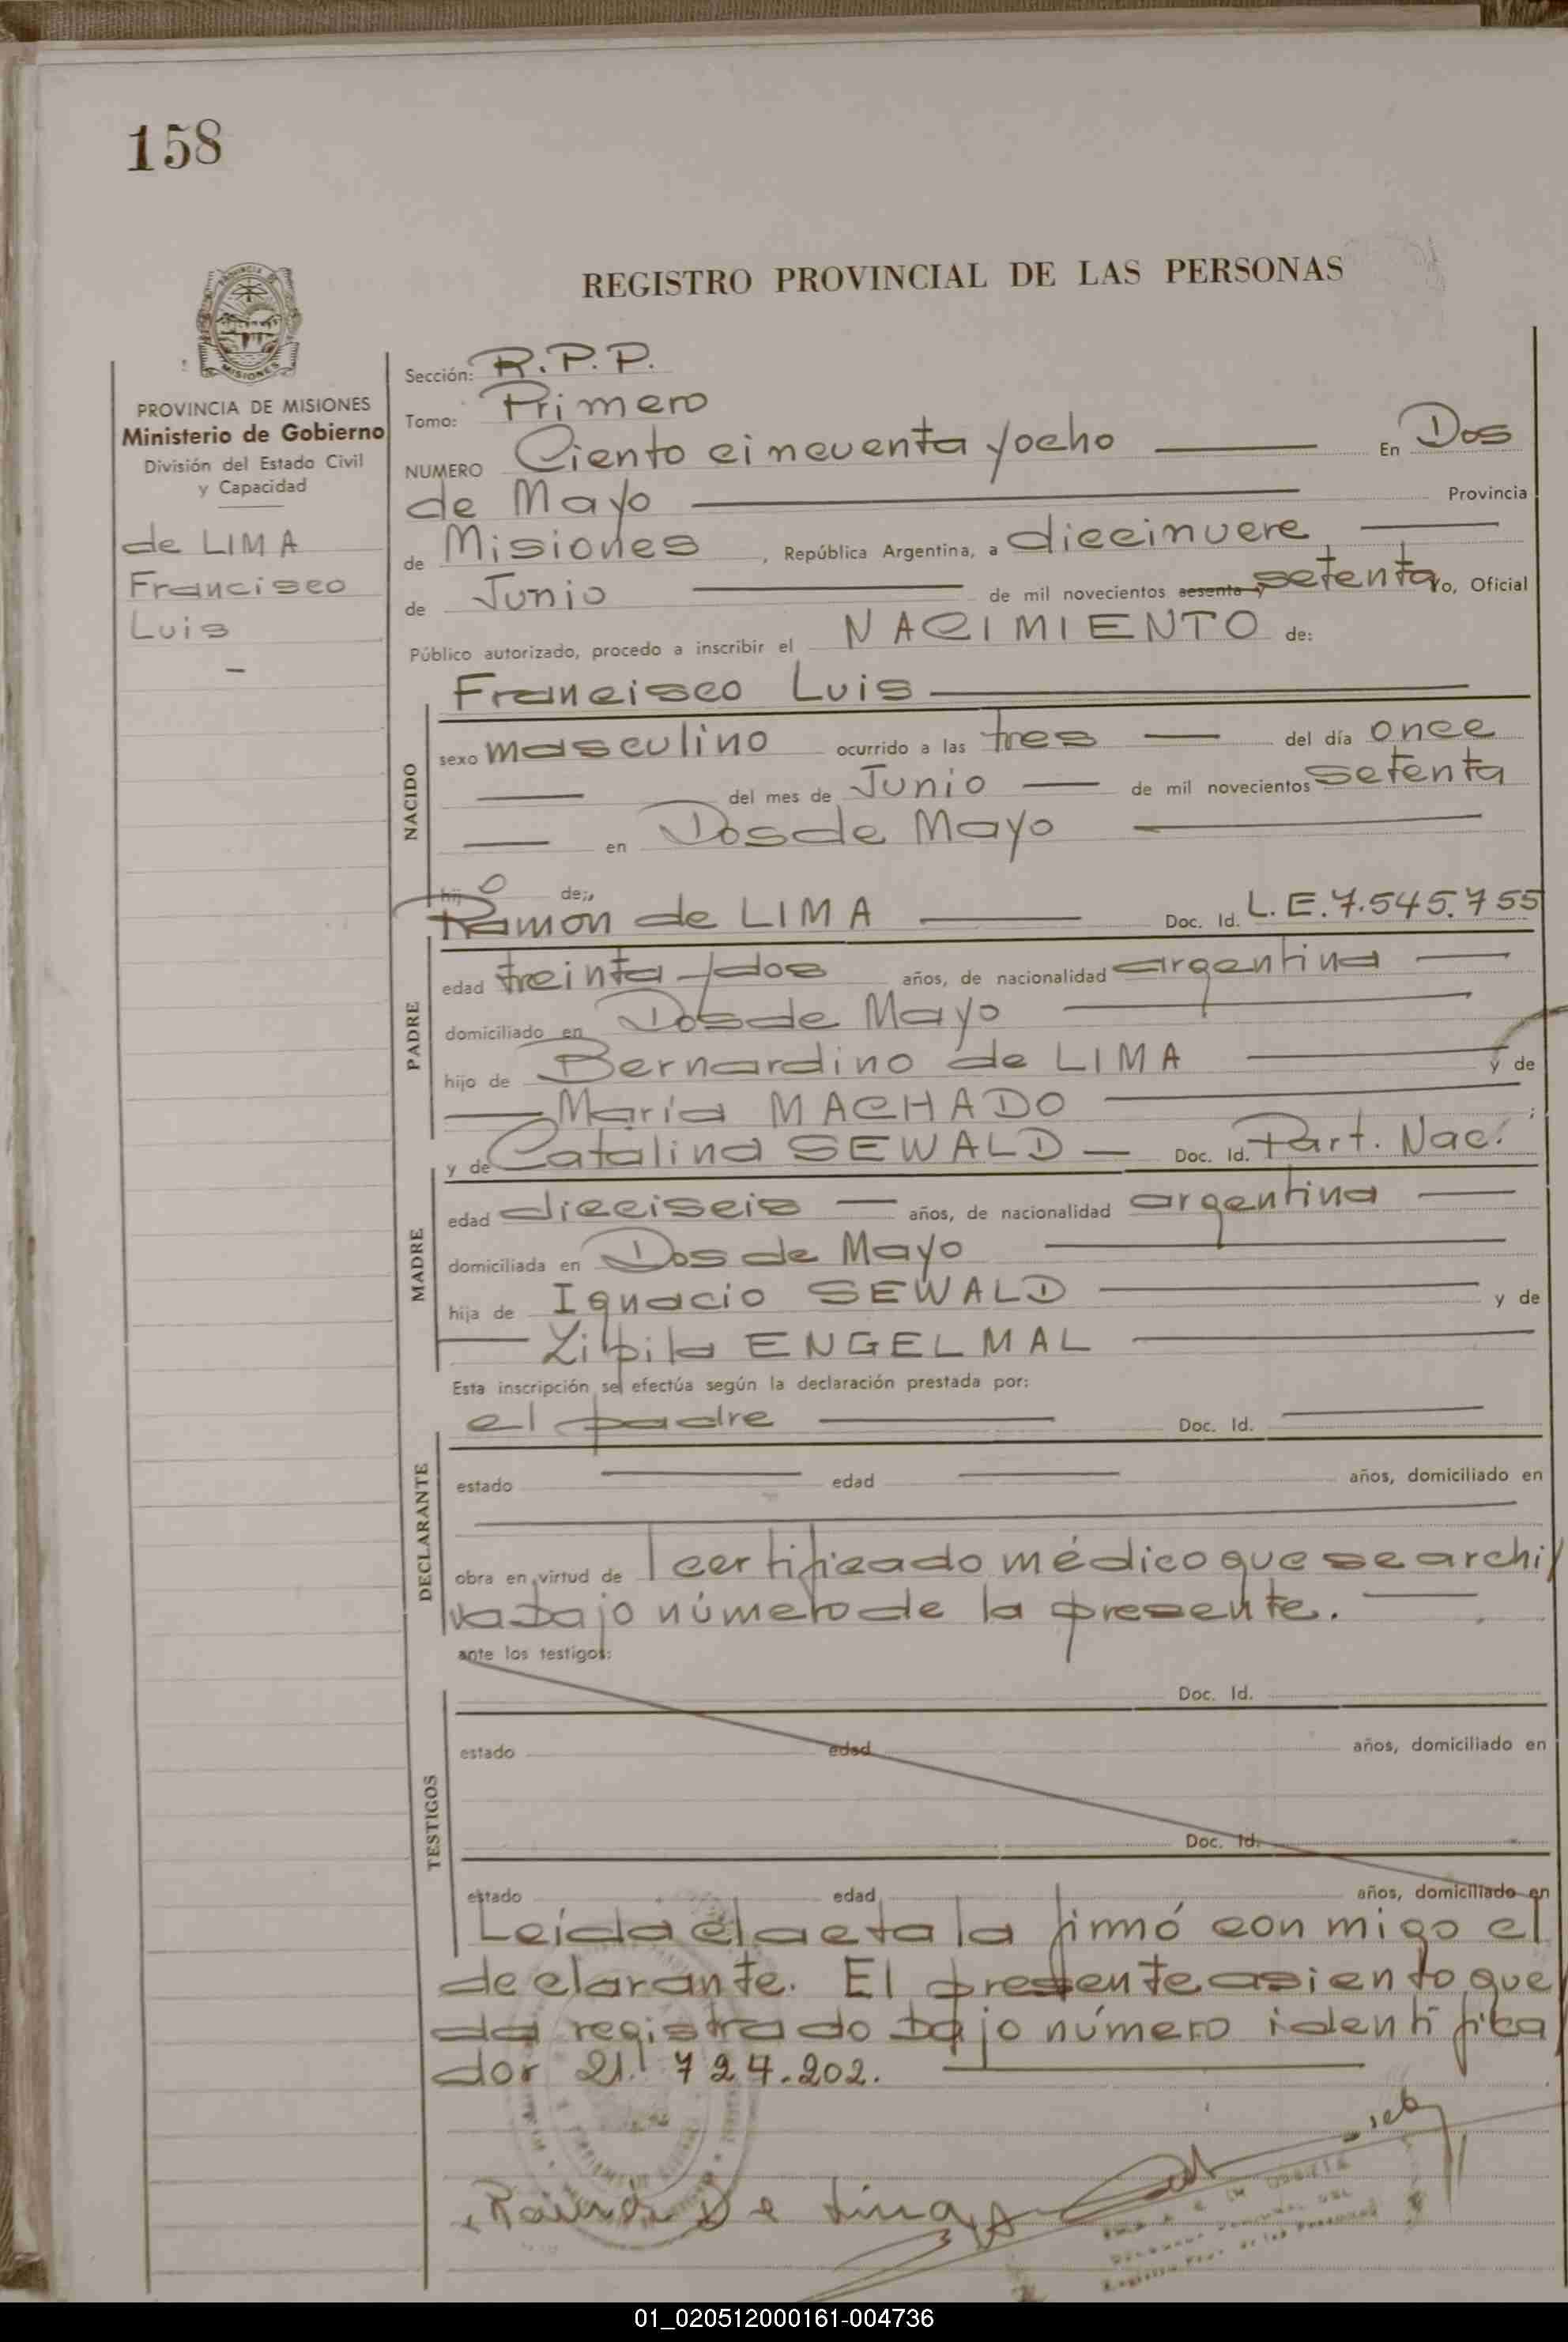 158
REGISTRO PROVINCIAL DE LAS PERSONAS
MISIONES
PROVINCIA DE MISIONES
Ministerio de Gobierno
División del Estado Civil
y Capacidad
de LIMA
Francisco
Luis
Sección: R.P.P.
Tomo: Primero
NUMERO Ciento cincuenta y ocho En Dos
de Mayo Provincia
de Misiones, República Argentina, a diecinueve
de Junio de mil novecientos sesenta y setenta yo, Oficial
Público autorizado, procedo a inscribir el NACIMIENTO de:
Francisco Luis
NACIDO
sexo masculino ocurrido a las tres del día once
del mes de Junio de mil novecientos setenta
en Dos de Mayo
hijo de:
Ramon de LIMA Doc. Id. L.E. 7.545.755
PADRE
edad treinta y dos años, de nacionalidad argentina
domiciliado en Dos de Mayo
hijo de Bernardino de LIMA y de
María MACHADO ;
y de Catalina SEWALD Doc. Id. Part. Nac.
MADRE
edad dieciseis años, de nacionalidad argentina
domiciliada en Dos de Mayo
hija de Ignacio SEWALD y de
ENGELMAL
Esta inscripción se efectúa según la declaración prestada por:
el padre Doc. Id.
DECLARANTE
estado edad años, domiciliado en
obra en virtud de l certificado médico que se archi
va bajo número de la presente.
ante los testigos:
Doc. Id.
TESTIGOS
estado edad años, domiciliado en
Doc. Id.
estado edad años, domiciliado en
Leída el acta la firmó conmigo el
declarante. El presente asiento que
da registrado bajo número identifica
dor 21.724.202.
De Lima
01_020512000161-004736